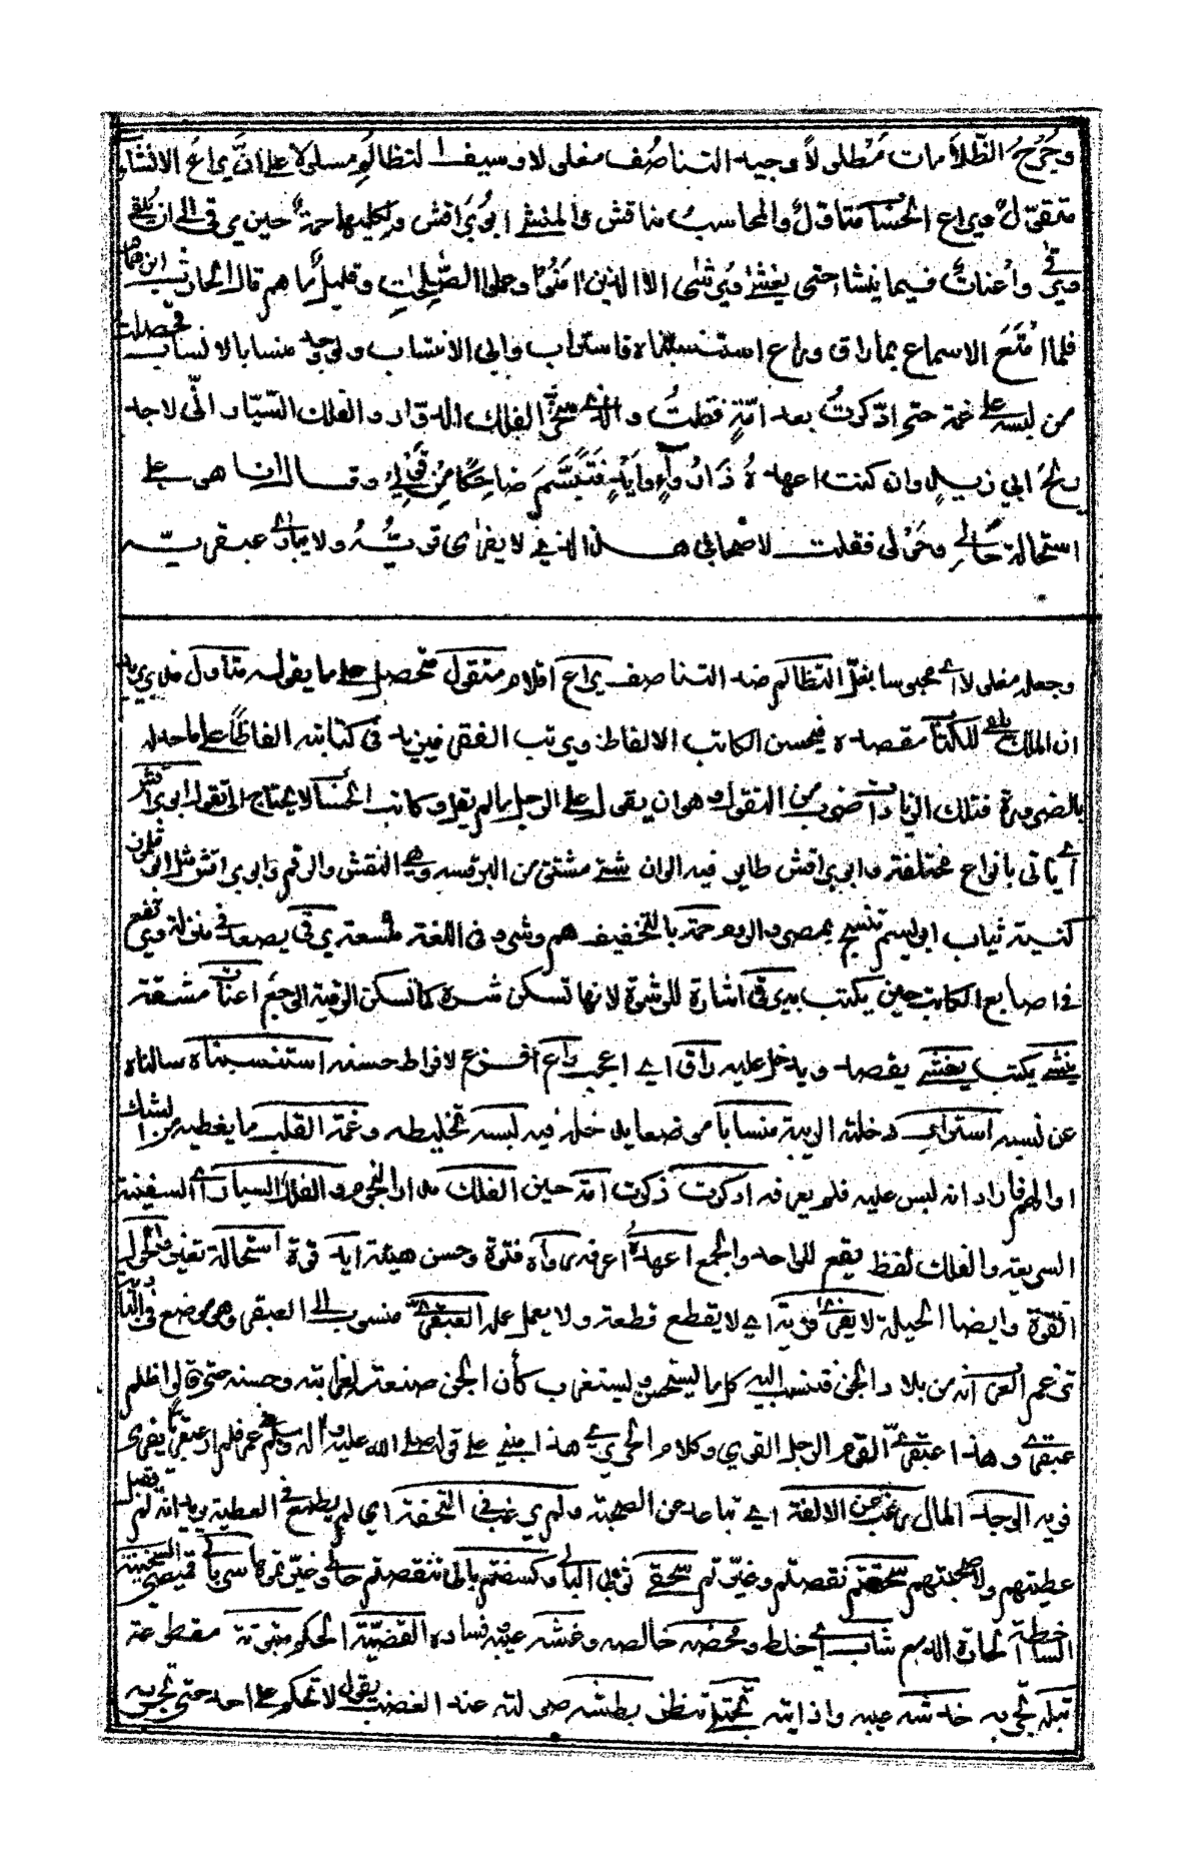 وجُرْحُ الظُّلاَمات مَطْلولاً وجيد التناصُف مغلولا وسيف التظالُمِ مسلولا على انَّ يراعَ الانشاء
متقوّلٌ ويراع الحُسّاب متاوّلٌ والمحاسب مناقش والمنشئ ابو بَرَاقش ولكليهما حمةٌ حين يرقى الى ان يُلْقى
ويُرْقَى وإعناتٌ فيما ينشا حتى يغشى ويُرشى الا الذين آمَنُوا وعملوا الصّٰلحٰتِ وقليلٌ ما هم قال الحارث ابن همام
فلما امْتَعَ الاسماع بما راق وراع استنسبناه فاستراب وابى الانتساب ولو وجد منسابا لانساب فحصلت
من لبسه على غمة حتى ادّكرتُ بعد امّةٍ فقلتُ والذي سخّر الفلك الدوّار والفلك السّيّار انّي لاجد
ريحَ ابي زيدٍ وان كنت اعهدهُ ذَا رُوَآءٍ وايدٍ فتَبَسَّمَ ضاحكًا مِنْ قَوْلي وقال انا هو على
استحالة حَالي وحَوْلي فقلت لاصحابي هذا الذي لا يفرى فريُّهُ ولا يبارى عبقريّه
وجعله مغلولا اي محبوسا بغلّ التظالم ضد التناصف يراع اقلام متقول متحصل على ما يقوله متاول
ان الملك يلقي للكُتّاب مقصده فيحسن الكاتب الالفاظ ويرتب الفقر فيزيد في كتابته الفاظًا على ما حد له
بالضرورة فتلك الزيادات ضرب من التقول وهو ان يقول على الرجل ما لم يقل وكاتب الحُسّاب لا يحتاج الى تقول ابو براقش
اي ياتي بانواع مختلفة وابو براقش طاير فيه الوان شتى مشتق من البرقشة وهي النقش والرقم وابو براقش مثل ابو قلمون
كنية ثياب ابريسم تنسج بمصر والروم حمة بالتخفيف هم وشره في اللغة يرقى يصعد في منزلة ويرتفع
في اصابع الكاتب حين يكتب يرقى اشارة للرشوة لانها تسكن شره كما تسكن الرقية الوجع اعنات مشقة
ينشئ يكتب يغشى يقصد ويدخل عليه راق اي اعجب راع افزع لافراط حسنه استنسبناه سالناه
عن نسبه استراب دخلته الريبة منسابا موضعا يدخله فيه لبسه تخليطه وغمة القلب ما يغطيه من الشك
او الهم فاراد انه لبس عليه فلم يعرفه ادكرت ذكرت امة حين الفلك مدار النجوم والفلك السيار اي السفينة
السريعة والفلك لفظ يقع للواحد والجمع اعهده اعرفه رواء فتوة وحسن هيئة ايد قوة استحالة تغيير حولي
القوة وايضا الحيلة لا يفرى فريه اي لا يقطع قطعه ولا يعمل عمله العبقري منسوب الى العبقر وهو موضع في البادية
تزعم العرب انه من بلاد الجن فتنسب اليه كل ما يستحسن ويستغرب كأن الجن صنعته لغرابته وحسنه حتى قالوا ظلم
عبقري وهذا عبقري القوم للرجل القوي وكلام الحريري هذا مبني على قوله صلى الله عليه وآله وسلم في عمر فلم ار عبقريا يفرى
فريه الوجد المال رغب عن الالفة اي تباعد عن الصحبة ولم يرغب في التحفة اي لم يطمع في العطية يريد انه لم يقبل
عطيتهم ولا صحبتهم سحقتم نقصتم وغيرتم سحقي ثوبي البالي وكسفتم بالي نقصتم حالي وغيرتموها سربالي قميصي السخينة
الساخطة الحارة الدمع شاب اي خلط ومحضه خالصه وغشه عيبه فساده القضيّة الحكم مبتوتة مقطوعة
تبله تجربه خدشه عيبه واذايته تجتلي تنظر بطشه صولته عند الغضب يقول لا تحكم على احد حتى تجربه